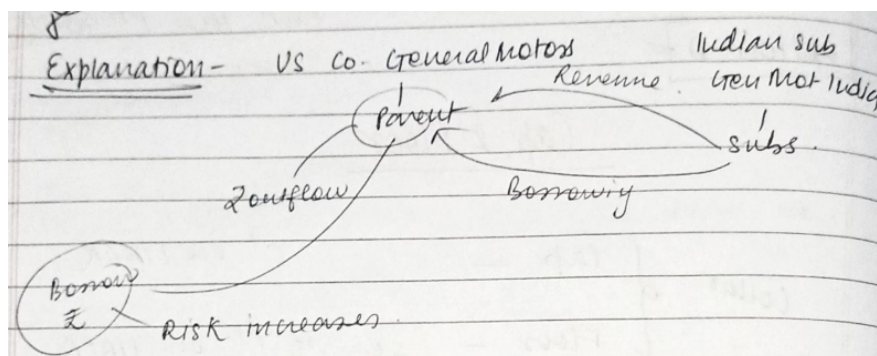 Explanation - US Co. General Motors Indian sub
Revenue. Gen Mot India
Parent
subs.
2 outflow Borrowing
Borrow
₹
Risk increases.